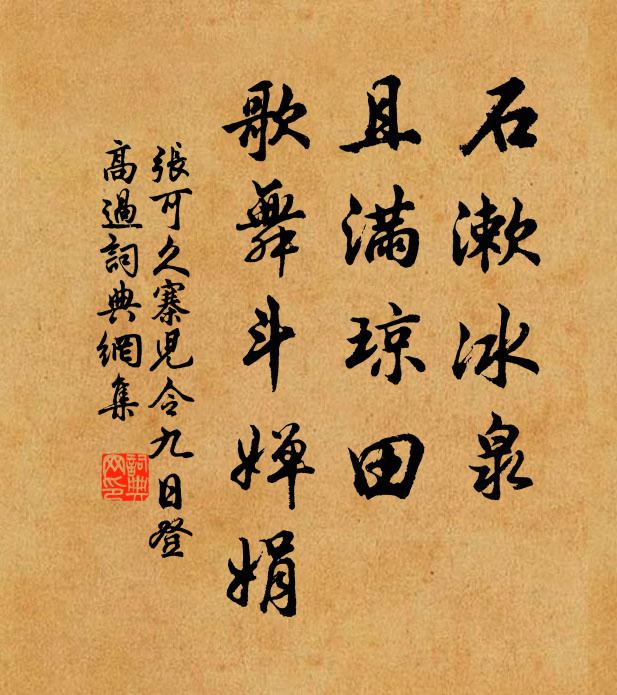 石漱冰泉
且满琼田
歌舞斗婵娟
張可久寨児令九日登
高過詞典網集
詞典
网印